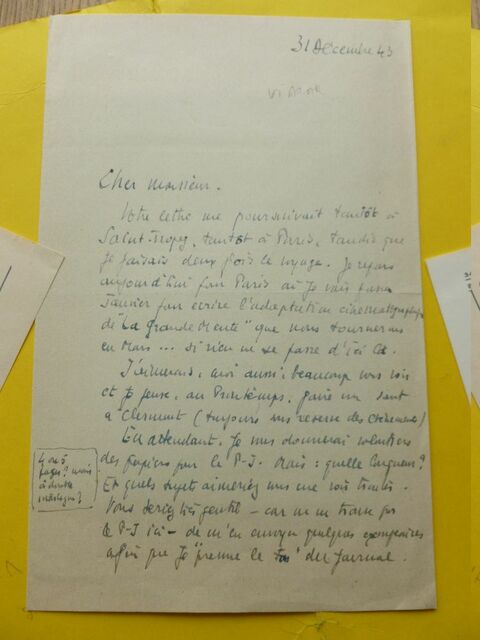 31 Décembre 43
Cher monsieur.
Votre lettre me poursuivait tantôt à
Saint-Tropez, tantôt à Paris, tandis que
je faisais deux fois le voyage. Je repars
aujourd'hui pour Paris où je vais passer
Janvier pour écrire l'adaptation cinématographique
de "La Grande Meute" que nous tournerons
en Mars... si rien ne se passe d'ici là.
J'aimerais, moi aussi, beaucoup vous voir
et je pense, au Printemps, faire un saut
à Clermont (toujours sous réserve des événements)
En attendant, je vous donnerai volontiers
des papiers pour le P-J. Mais : quelle longueur?
Et quels sujets aimeriez vous me voir traiter.
Vous seriez très gentil – car on ne trouve pas
le P-J ici – de m'en envoyer quelques exemplaires
afin que je "prenne le ton" du Journal.
4 ou 5
pages? mais
à double
interligne?